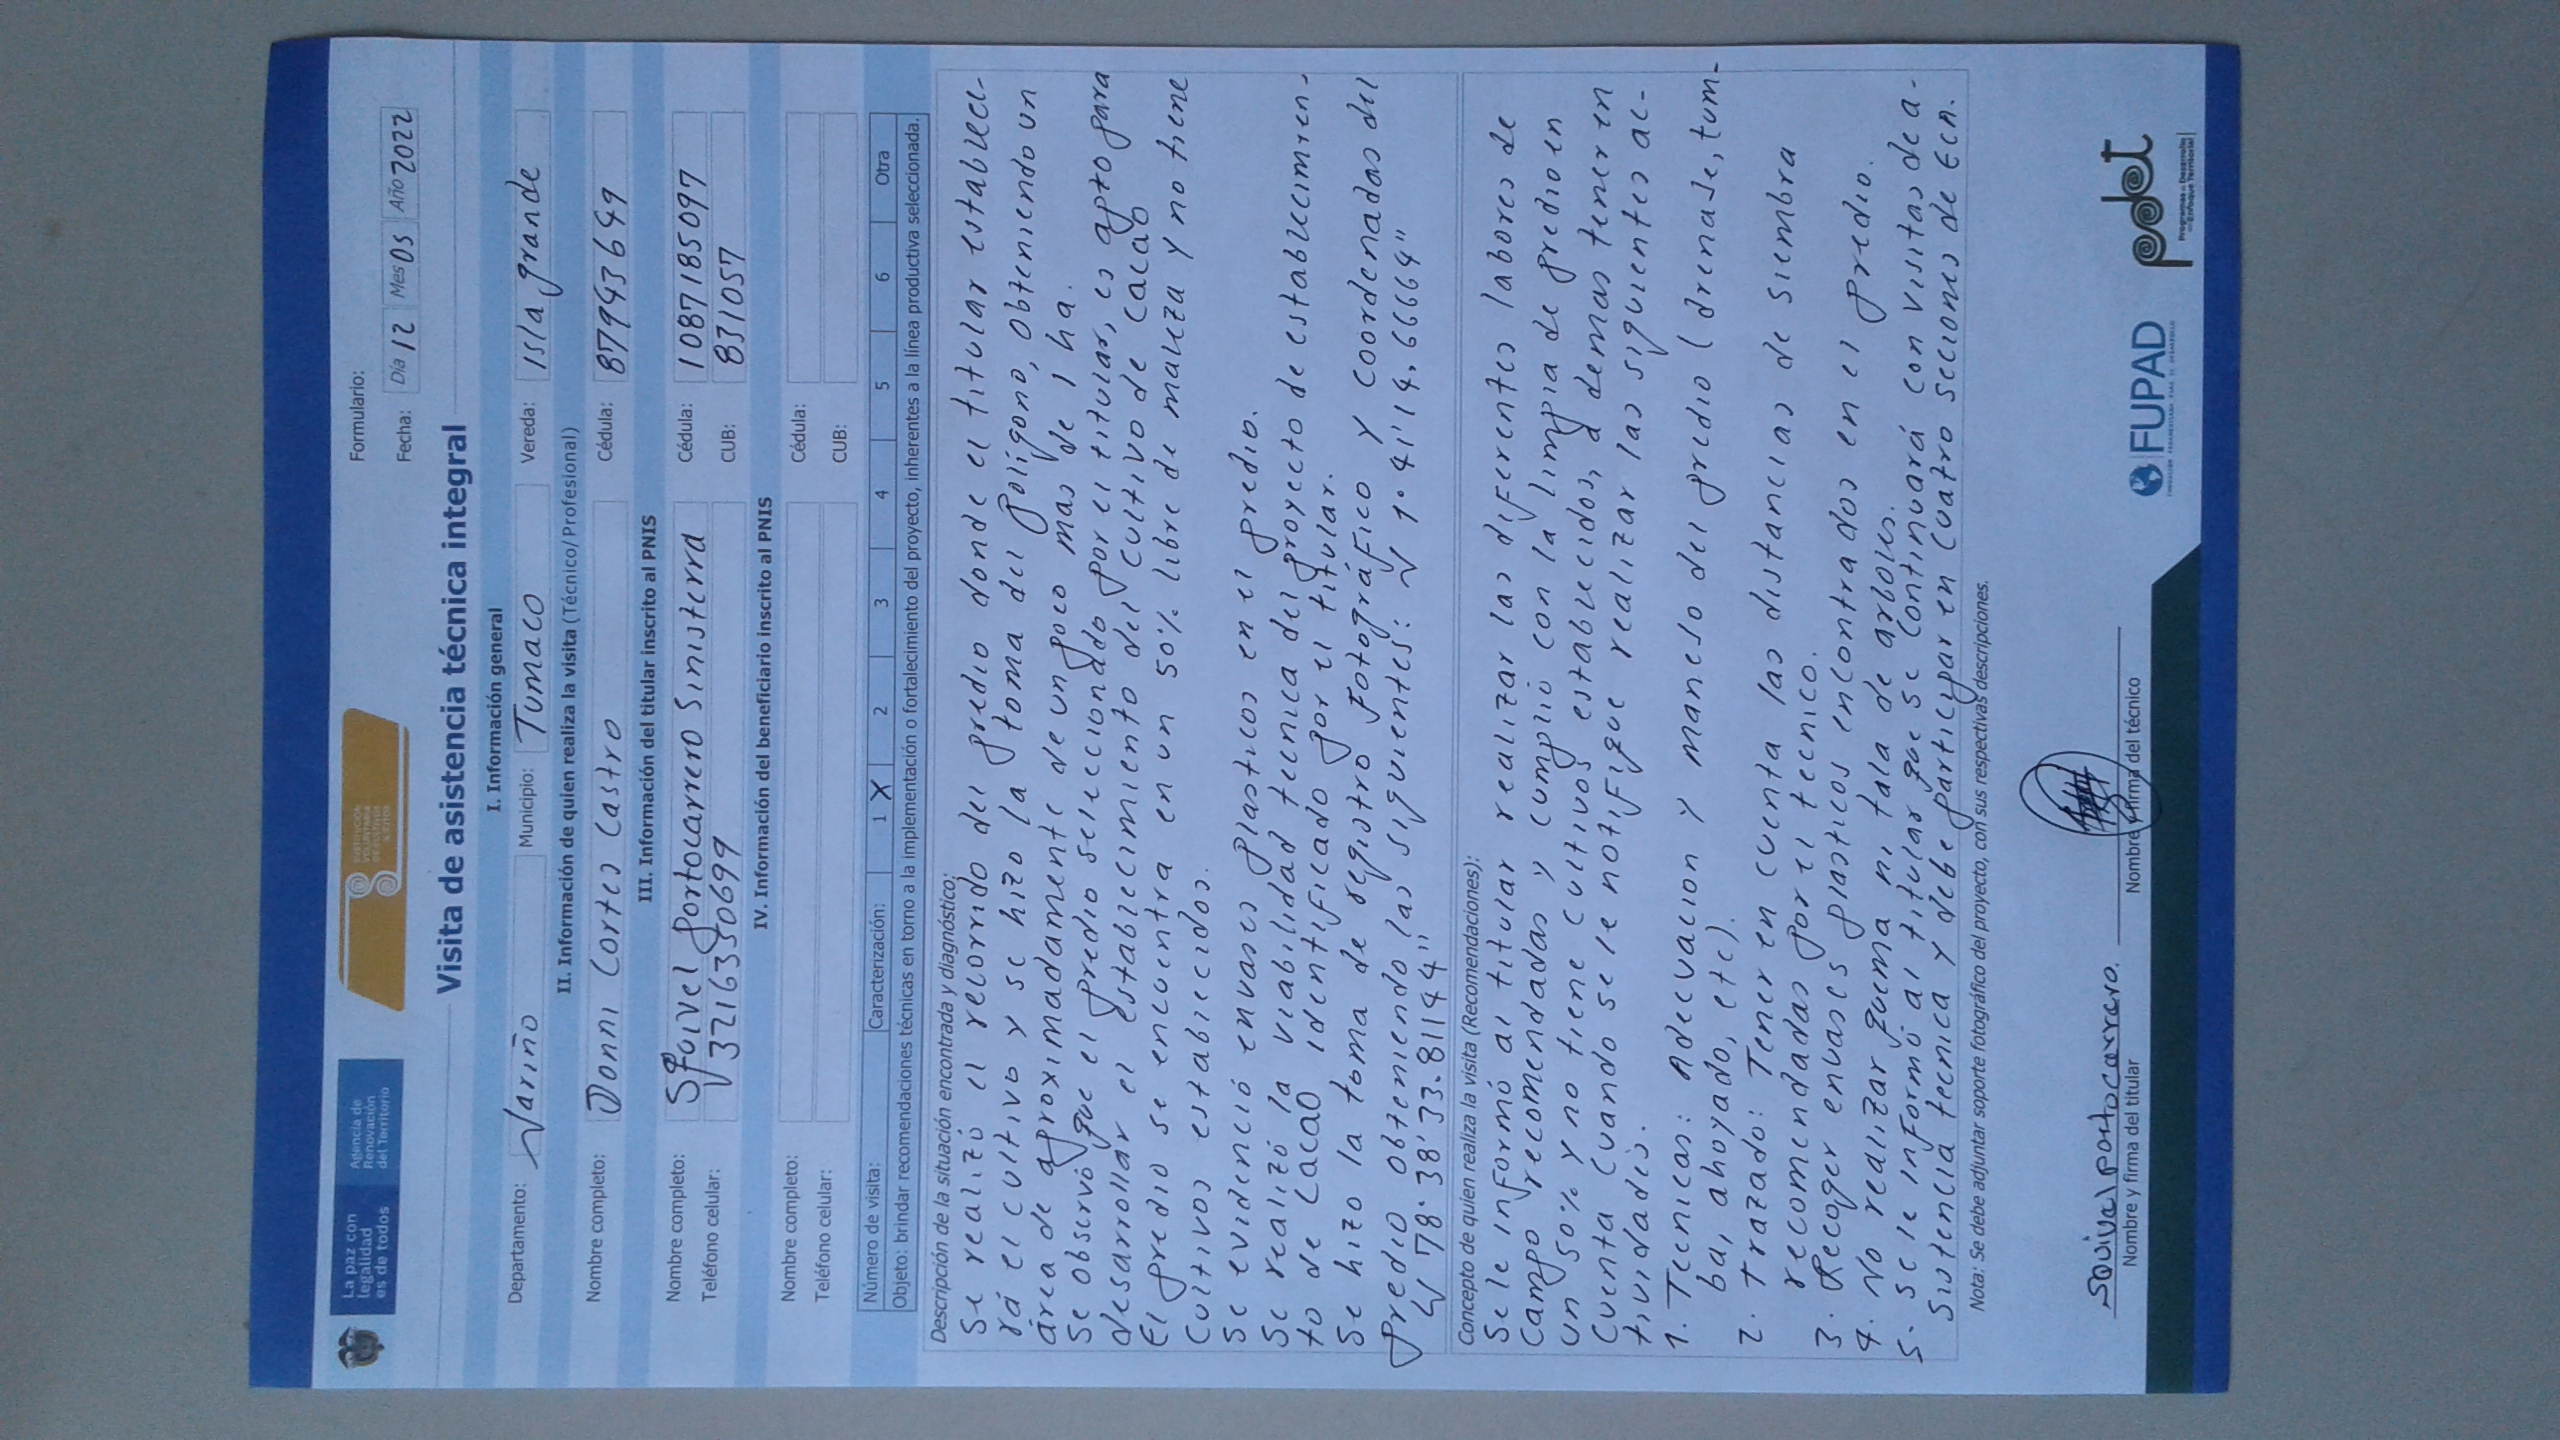 La paz con
legalidad
es de todos
Agencia de
Renovación
del Territorio
SUSTITUCIÓN
VOLUNTARIA
DE CULTIVOS
ILÍCITOS
Formulario:
Fecha: Día 12 Mes 05 Año 2022
Visita de asistencia técnica integral
I. Información general
Departamento: Nariño Municipio: Tumaco Vereda: Isla grande
II. Información de quien realiza la visita (Técnico/Profesional)
Nombre completo: Donni Cortes Castro Cédula: 87943649
III. Información del titular inscrito al PNIS
Nombre completo: Portocarrero Sinisterra Cédula: 1087185097
Teléfono celular: 3216330699 CUB: 831057
IV. Información del beneficiario inscrito al PNIS
Nombre completo: Cédula:
Teléfono celular: CUB:
Número de visita: Caracterización: 1 X 2 3 4 5 6 Otra
Objeto: brindar recomendaciones técnicas en torno a la implementación o fortalecimiento del proyecto, inherentes a la línea productiva seleccionada.
Descripción de la situación encontrada y diagnóstico:
Se realizó el recorrido del predio donde el titular establece-
rá el cultivo y se hizo la toma del polígono, obteniendo un
área de aproximadamente de un poco mas de 1 ha.
Se observó que el predio seleccionado por el titular, es apto para
desarrollar el establecimiento del cultivo de cacao
El predio se encuentra en un 50% libre de maleza y no tiene
cultivos establecidos.
Se evidenció envases plasticos en el predio.
Se realizó la viabilidad tecnica del proyecto de establecimien-
to de cacao identificado por el titular.
Se hizo la toma de registro fotográfico y coordenadas del
predio obteniendo las siguientes: N 1° 41' 14. 66664"
W 78° 38' 33.81144"
Concepto de quien realiza la visita (Recomendaciones):
Se le informó al titular realizar las diferentes labores de
campo recomendadas y cumplió con la limpia de predio en
un 50% y no tiene cultivos establecidos, a demas tener en
cuenta cuando se le notifique realizar las siguientes ac-
tividades.
1. Tecnicas: Adecuacion y manejo del predio (drenaje, tum-
ba, ahoyado, etc).
2. trazado: Tener en cuenta las distancias de siembra
recomendadas por el tecnico.
3. Recoger envases plasticos encontrados en el predio.
4. No realizar quema ni tala de arboles.
5. Se le informó al titular que se continuará con visitas de a-
sistencia tecnica y debe participar en cuatro secciones de ECA.
Nota: Se debe adjuntar soporte fotográfico del proyecto, con sus respectivas descripciones.
Squivel portocarrero.
Nombre y firma del titular
Nombre y firma del técnico
FUPAD
pdet
Programas de Desarrollo
con Enfoque Territorial